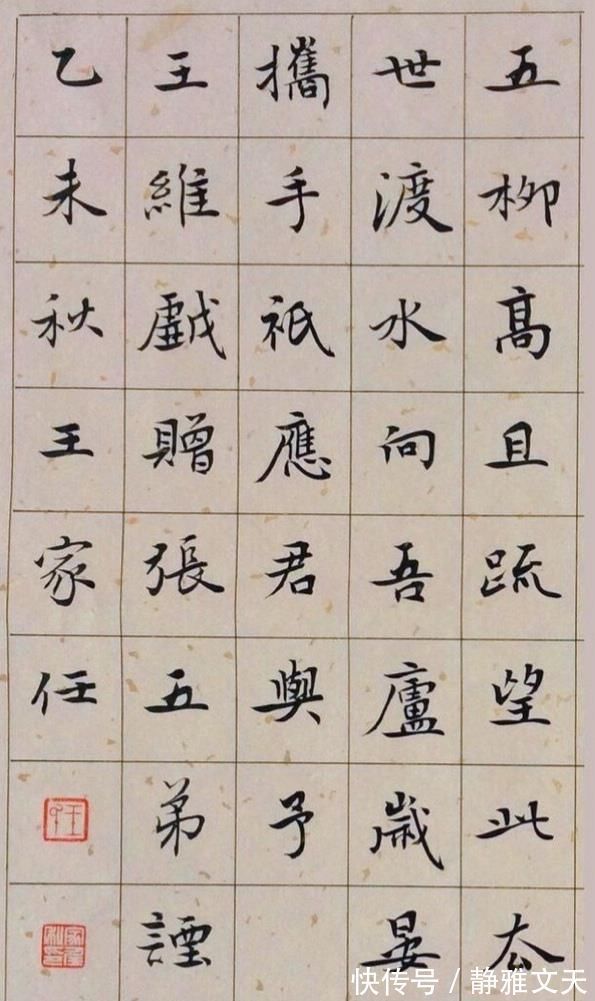 五柳髙且疏望此厺
世渡水向吾廬歲晏
攜手祇應君與予
王維戱贈張五弟諲
乙未秋王家任
快传号 / 静雅文天